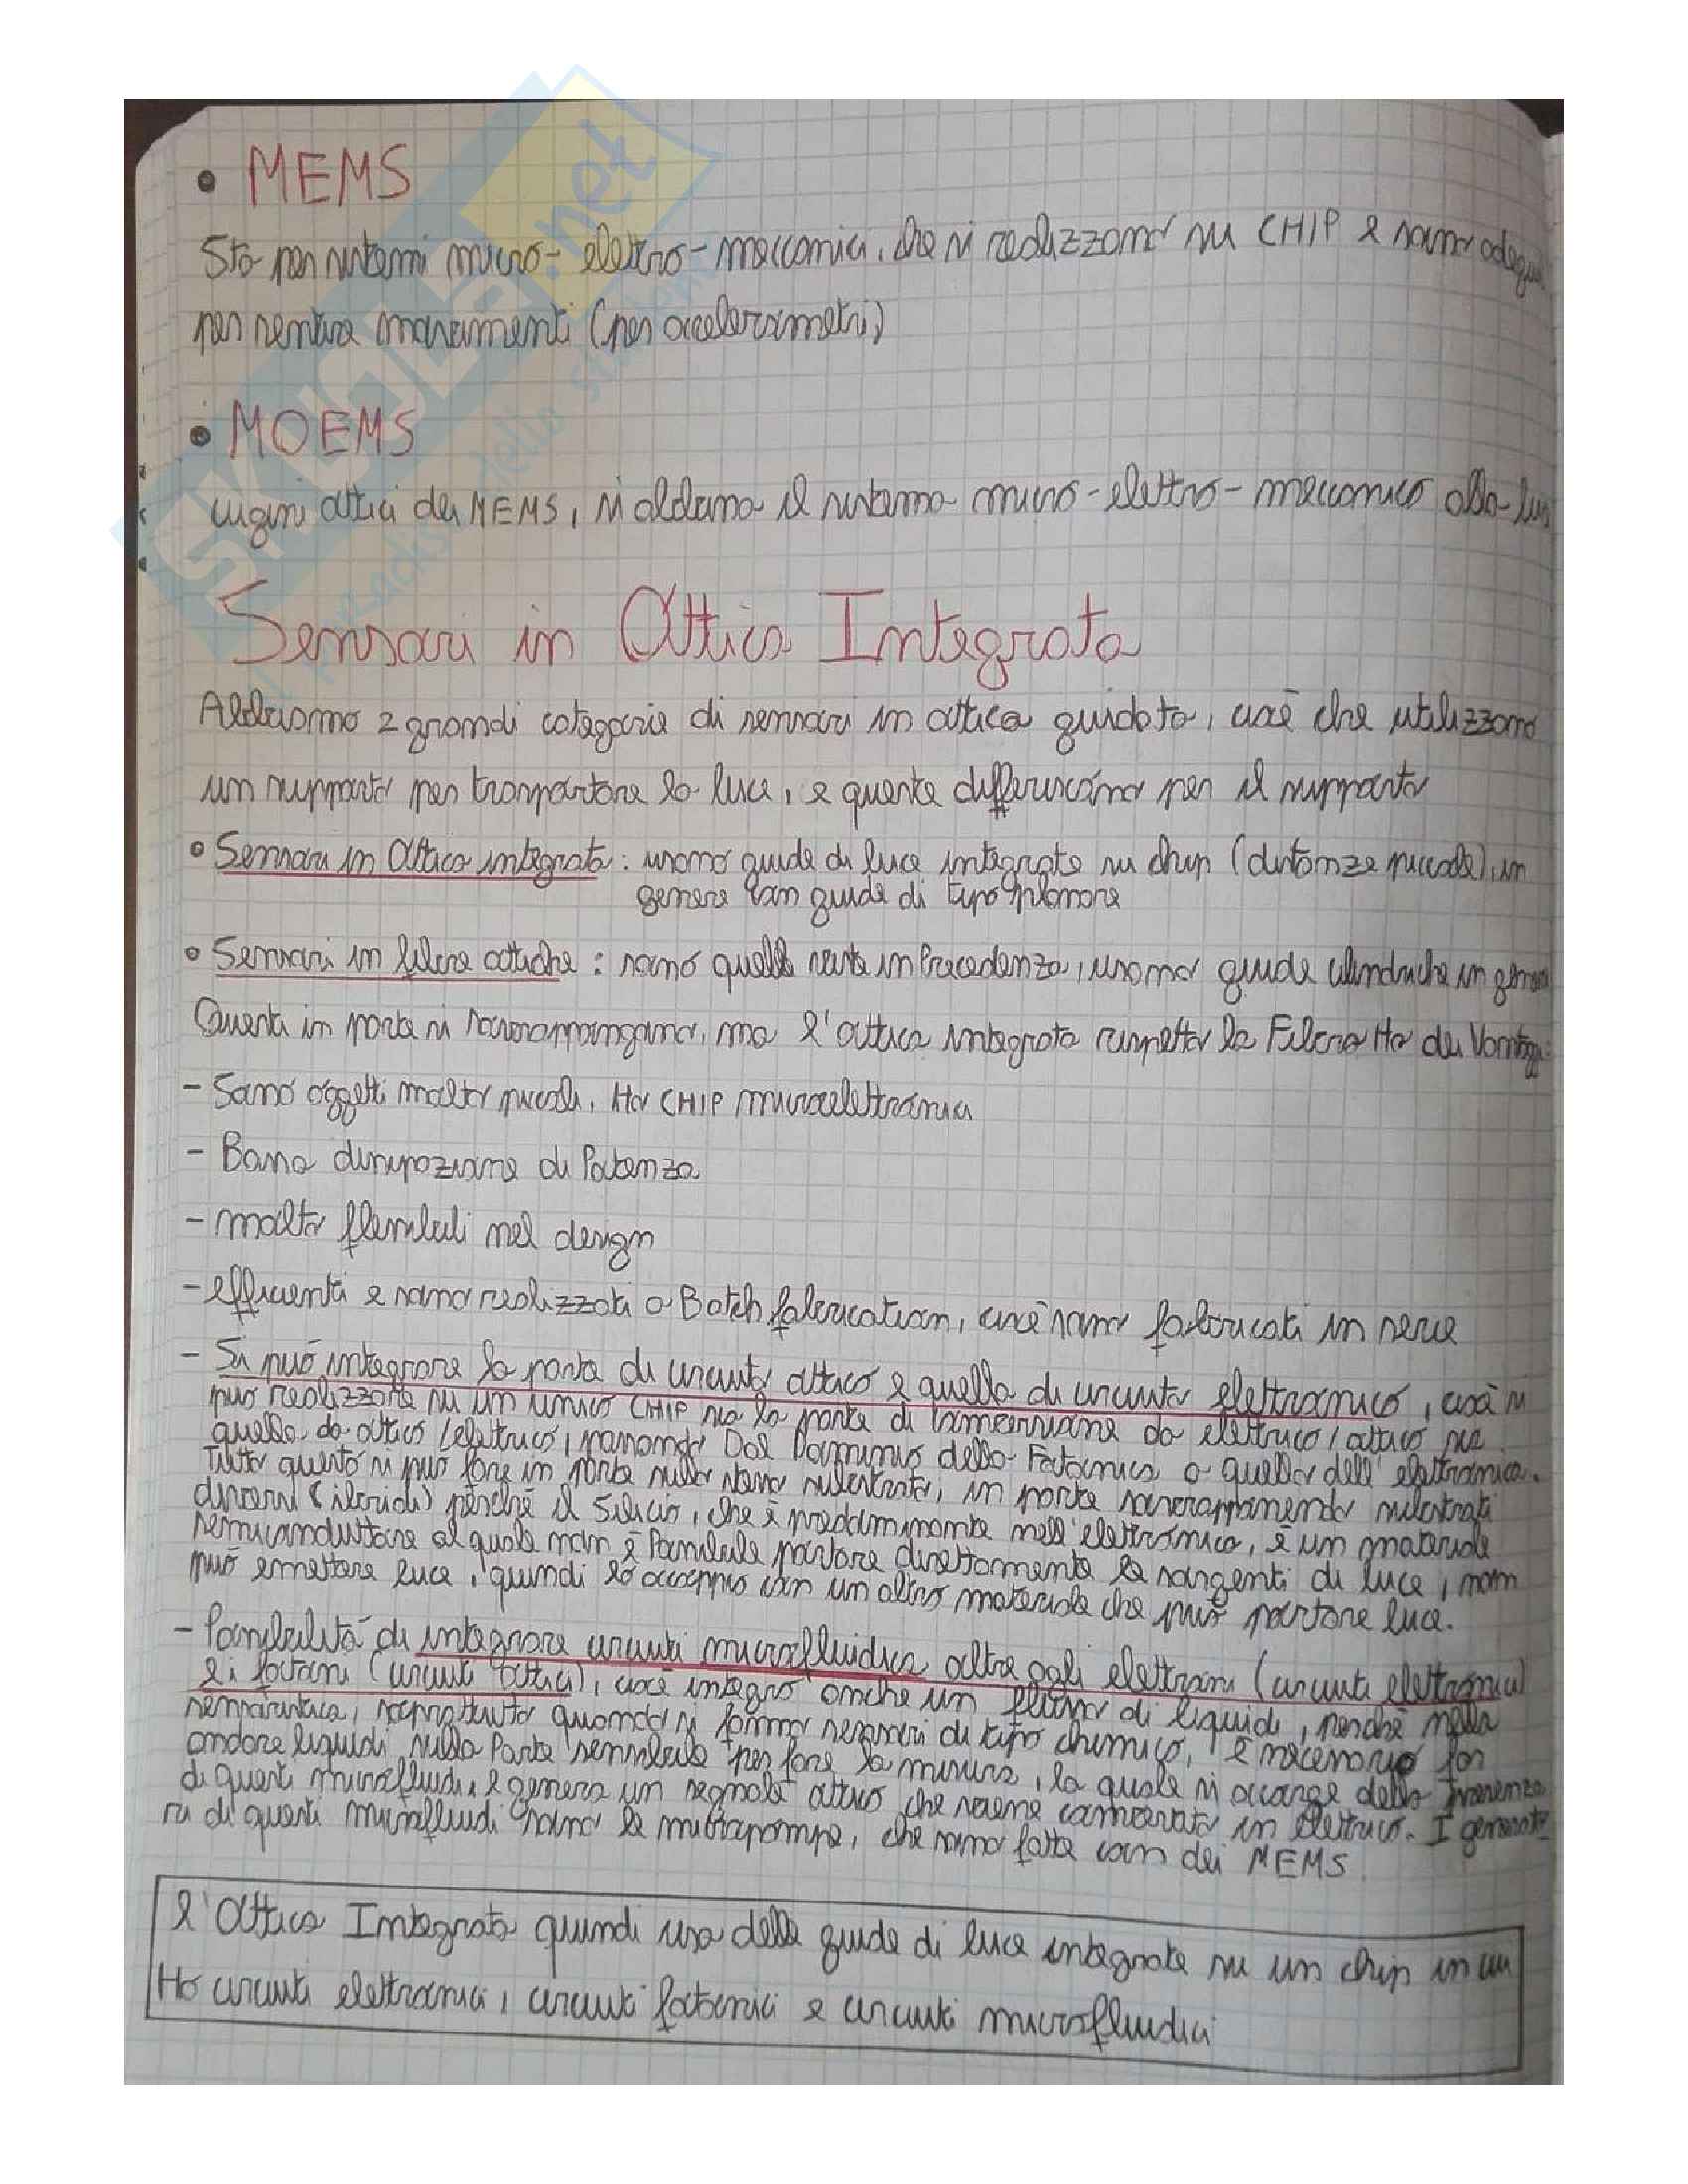 • MEMS
Sta per sistemi micro-elettro-meccanici, che si realizzano su CHIP e sono adegua
per sentire movimenti (per accelerometri)
• MOEMS
cugini ottici dei MEMS, si abbina il sistema micro-elettro-meccanico alla luce
Sensori in Ottica Integrata
Abbiamo 2 grandi categorie di sensori in ottica guidata, cioè che utilizzano
un supporto per trasportare la luce, e queste differiscono per il supporto
• Sensori in Ottica integrata: usano guide di luce integrate su chip (distanze piccole), in
genere con guide di tipo planare
• Sensori in fibre ottiche: sono quelle viste in Precedenza, usano guide cilindriche in genere
Questi in parte si sovrappongono, ma l'ottica integrata rispetto la Fibra Ha dei Vantaggi:
- Sono oggetti molto piccoli, Ho CHIP microelettronici
- Bassa dissipazione di Potenza
- molto flessibili nel design
- efficienti e sono realizzati a Batch fabrication, cioè sono fabbricati in serie
- Si può integrare la parte di circuito ottico e quella di circuito elettronico, così si
può realizzare su un unico CHIP sia la parte di conversione da elettrico/ottico sia
quella da ottico/elettrico, passando Dal Dominio della Fotonica a quello dell'elettronica.
Tutto questo si può fare in parte sullo stesso substrato, in parte sovrapponendo substrati
diversi (ibridi) perché il Silicio, che è predominante nell'elettronica, è un materiale
semiconduttore al quale non è Possibile portare direttamente le sorgenti di luce, non
può emettere luce, quindi lo accoppio con un altro materiale che può portare luce.
- Possibilità di integrare circuiti microfluidica oltre agli elettroni (circuiti elettronici)
e i fotoni (circuiti ottici), cioè integro anche un flusso di liquidi, perché nella
sensoristica, soprattutto quando si fanno sensori di tipo chimico, è necessario far
andare liquidi sulla Parte sensibile per fare la misura, la quale si accorge della Presenza
di questi microfluidi, e genera un segnale ottico che viene convertito in elettrico. I generato
ri di questi microfluidi sono le micropompe, che sono fatte con dei MEMS.
l'Ottica Integrata quindi usa delle guide di luce integrate su un chip in cui
Ho circuiti elettronici, circuiti fotonici e circuiti microfluidici
SKUOLA.net